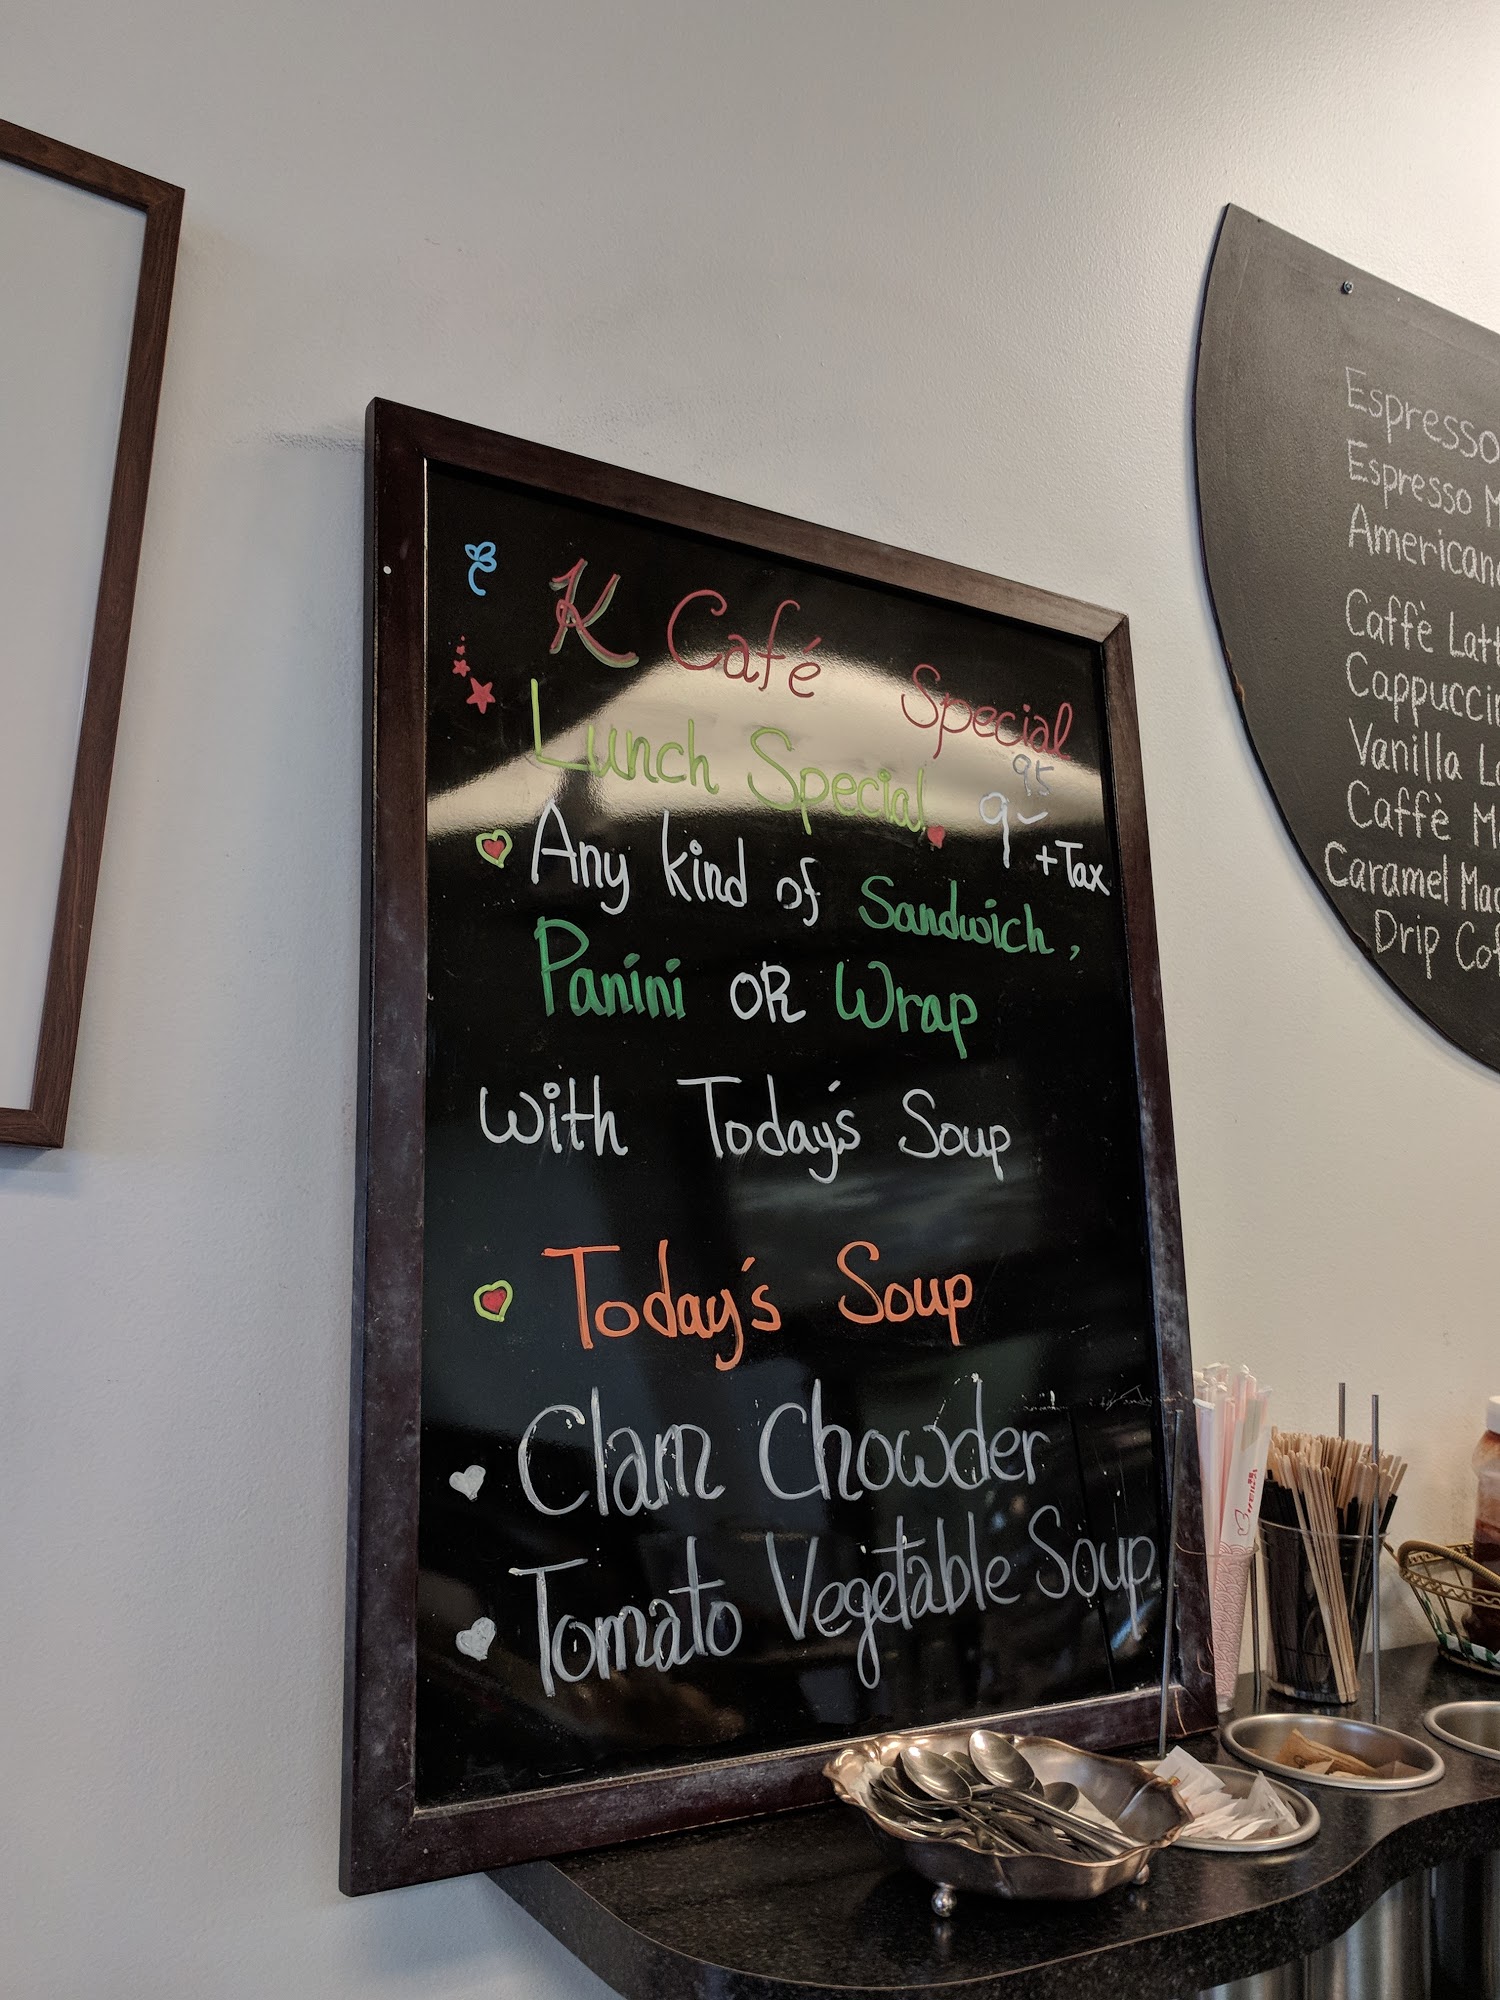 K Café Special
Lunch Special 9 95
+Tax
Any kind of Sandwich,
Panini OR Wrap
with Today's Soup
Today's Soup
Clam Chowder
Tomato Vegetable Soup
Espresso
Espresso M
American
Caffè Latt
Cappuccin
Vanilla La
Caffè M
Caramel Mac
Drip Cof